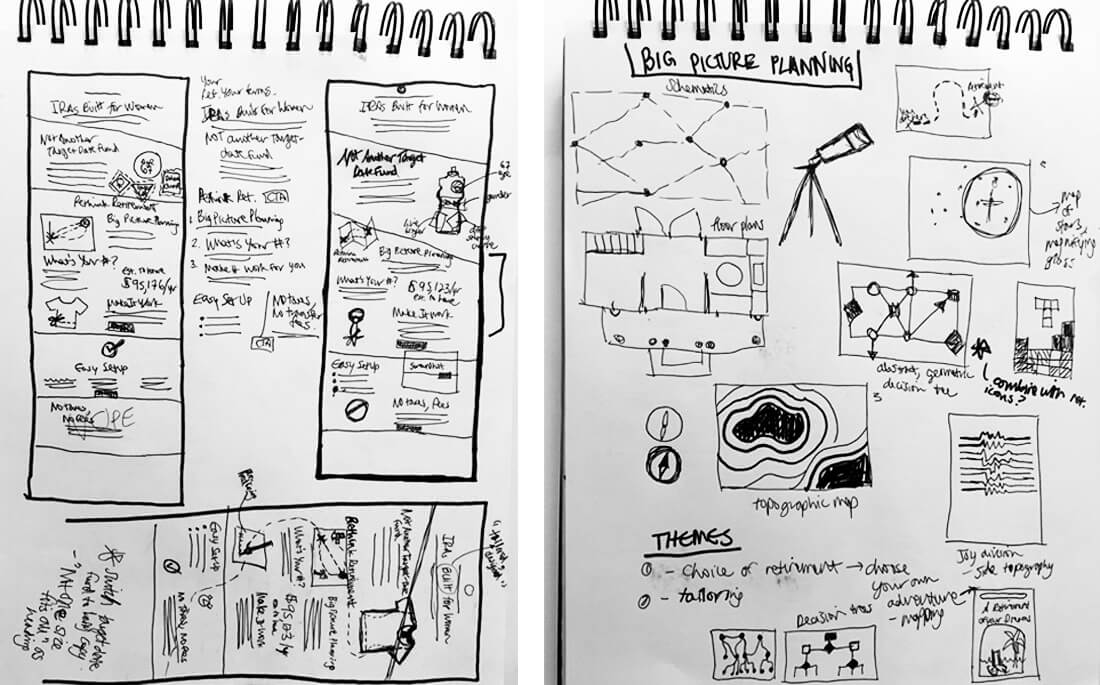 IRAs Built for Women
Not Another
Target Date Fund
Rethink Retirement
Big Picture Planning
What's Your #?
est. to have
$95,176/yr
Make It Work
Easy Setup
No taxes,
No fees
Your
Ret. Your terms.
IRAs Built for Women
NOT another Target-
date Fund
Rethink Ret.
CTA
1. Big Picture Planning
2. What's Your #?
3. Make it work for you
Easy Set Up
No taxes,
No transfer
fees.
CTA
IRAs Built for Women
Not Another Target
Date Fund
gender
Big Picture Planning
What's Your #?
$95,123/yr
est. to have
Make It Work
Easy Setup
No taxes, Fees
"tailored"
IRAs
Built for Women
Not Another Target Date
Fund
Rethink Retirement
Big Picture Planning
What's Your #?
$95,123/yr
Make It Work
Easy Set Up
No taxes, No Fees
Switch target date
fund to
"Not one size
fits all" as
heading
BIG PICTURE PLANNING
Schematics
floor plans
map
of
stars,
magnifying
glass
abstract, geometric
decision tree
combine with ret.
icons?
topographic map
Joy division
- side topography
THEMES
① - Choice of retirement → choose
your own
adventure
- mapping
② - tailoring
Decision trees
A Retirement
of your Dreams